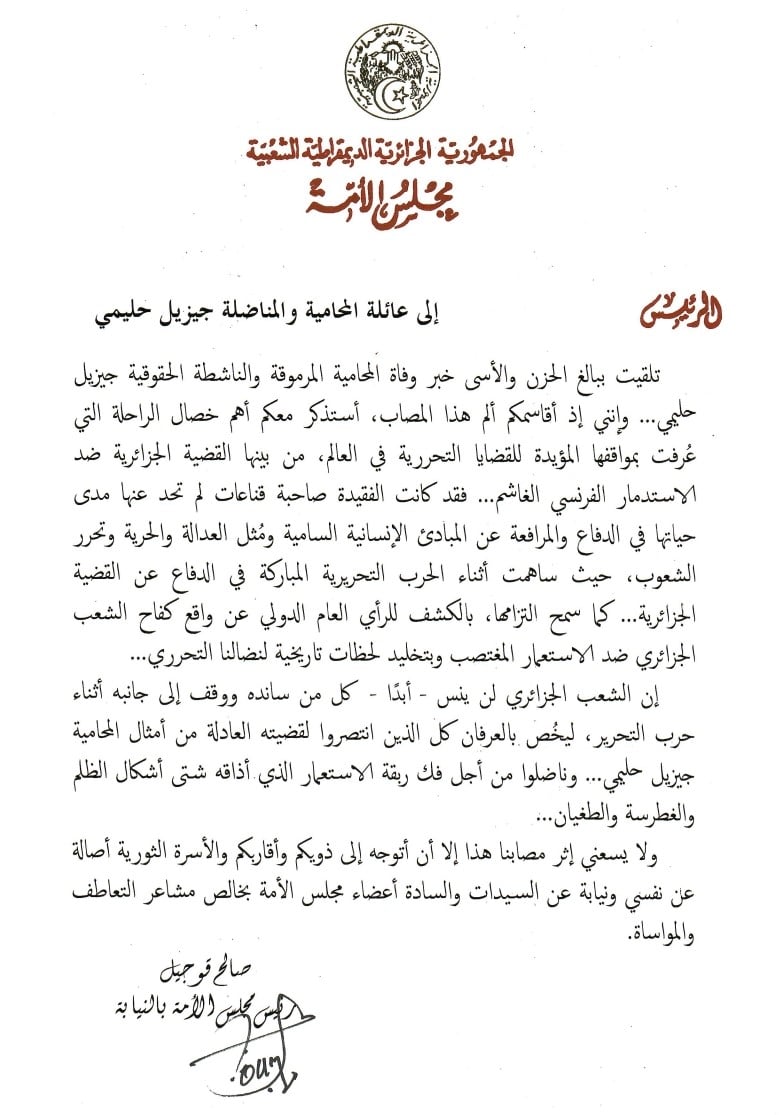 الجمهورية الجزائرية الديمقراطية الشعبية
الجمهورية الجزائرية الديمقراطية الشعبية
مجلس الأمة
الرئيس
إلى عائلة المحامية والمناضلة جيزيل حليمي
تلقيت ببالغ الحزن والأسى خبر وفاة المحامية المرموقة والناشطة الحقوقية جيزيل
حليمي... وإنني إذ أقاسمكم ألم هذا المصاب، أستذكر معكم أهم خصال الراحلة التي
عُرفت بمواقفها المؤيدة للقضايا التحررية في العالم، من بينها القضية الجزائرية ضد
الاستدمار الفرنسي الغاشم... فقد كانت الفقيدة صاحبة قناعات لم تحد عنها مدى
حياتها في الدفاع والمرافعة عن المبادئ الإنسانية السامية ومُثل العدالة والحرية وتحرر
الشعوب، حيث ساهمت أثناء الحرب التحريرية المباركة في الدفاع عن القضية
الجزائرية... كما سمح التزامها، بالكشف للرأي العام الدولي عن واقع كفاح الشعب
الجزائري ضد الاستعمار المغتصب وبتخليد لحظات تاريخية لنضالنا التحرري...
إن الشعب الجزائري لن ينس - أبدًا - كل من سانده ووقف إلى جانبه أثناء
حرب التحرير، ليخُص بالعرفان كل الذين انتصروا لقضيته العادلة من أمثال المحامية
جيزيل حليمي... وناضلوا من أجل فك ربقة الاستعمار الذي أذاقه شتى أشكال الظلم
والغطرسة والطغيان...
ولا يسعني إثر مصابنا هذا إلا أن أتوجه إلى ذويكم وأقاربكم والأسرة الثورية أصالة
عن نفسي ونيابة عن السيدات والسادة أعضاء مجلس الأمة بخالص مشاعر التعاطف
والمواساة.
صالح قوجيل
رئيس مجلس الأمة بالنيابة